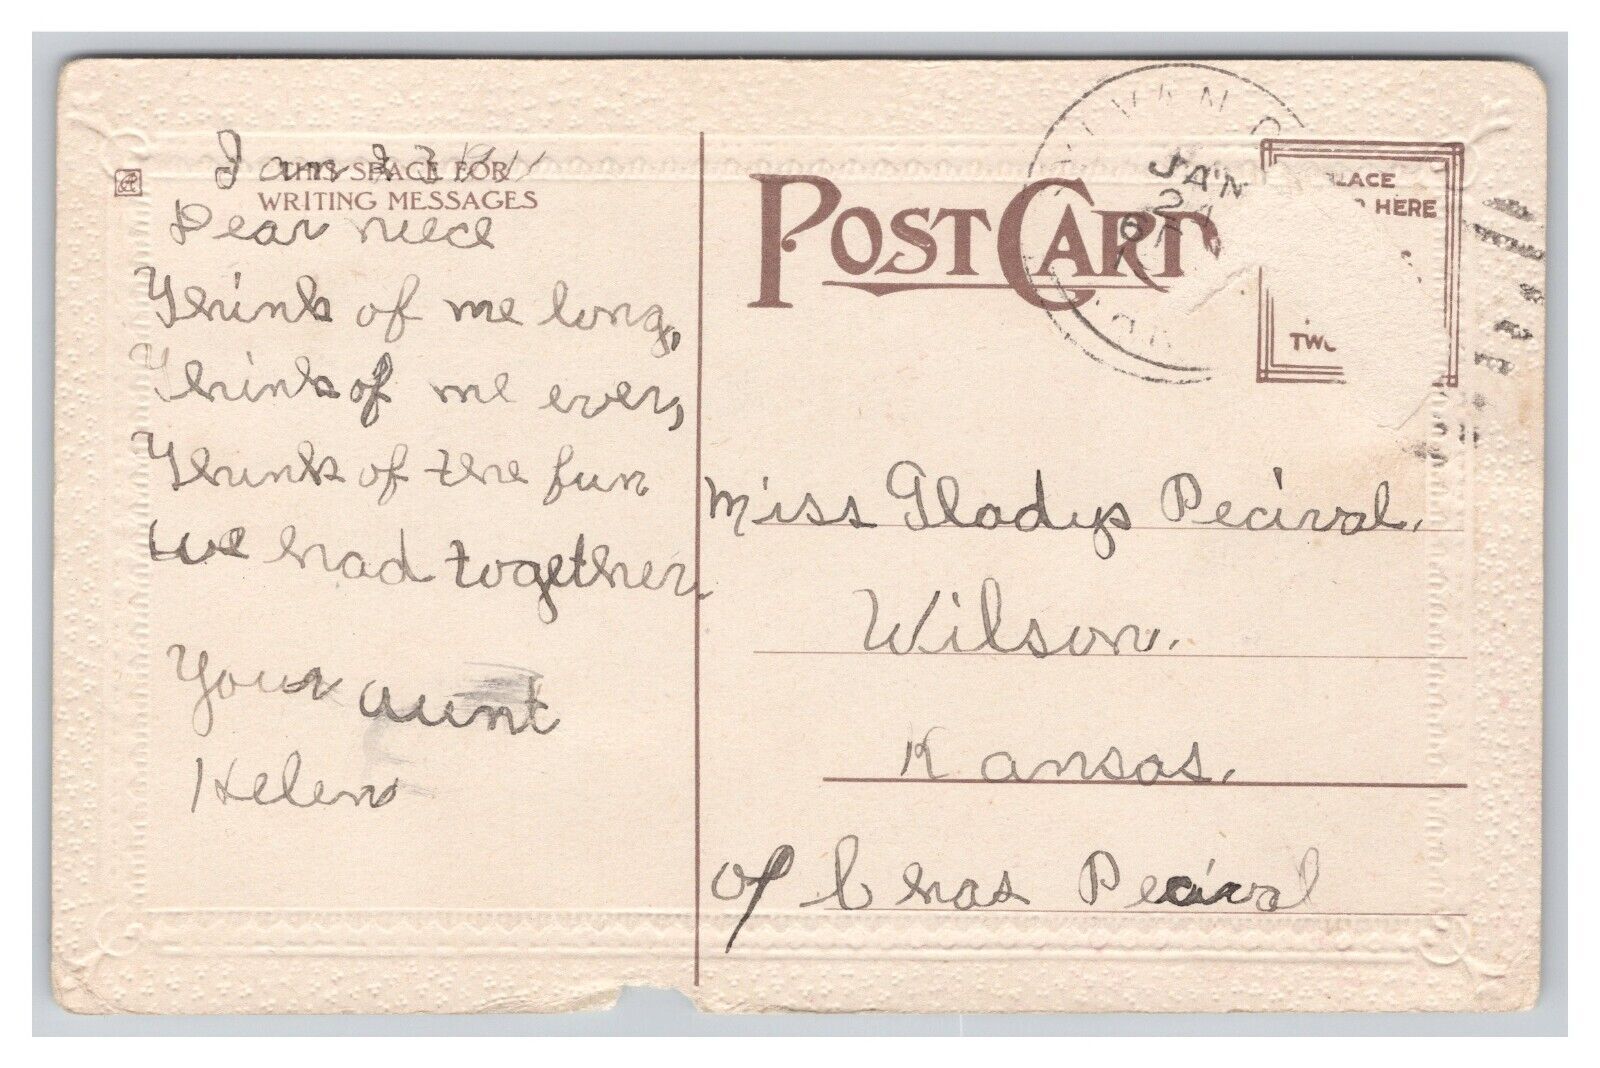 Jan 23 1911
THIS SPACE FOR
WRITING MESSAGES
Dear niece
Think of me long,
Think of me ever,
Think of the fun
we had together.
Your aunt
Helen
POST CARD
JAN
PLACE
HERE
Miss Gladys Pecival.
Wilson.
Kansas.
of Chas Pecival